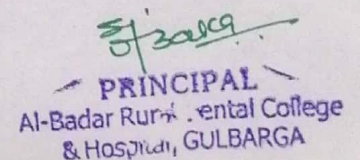 PRINCIPAL
Al-Badar Rur ental College
& Hospital, GULBARGA